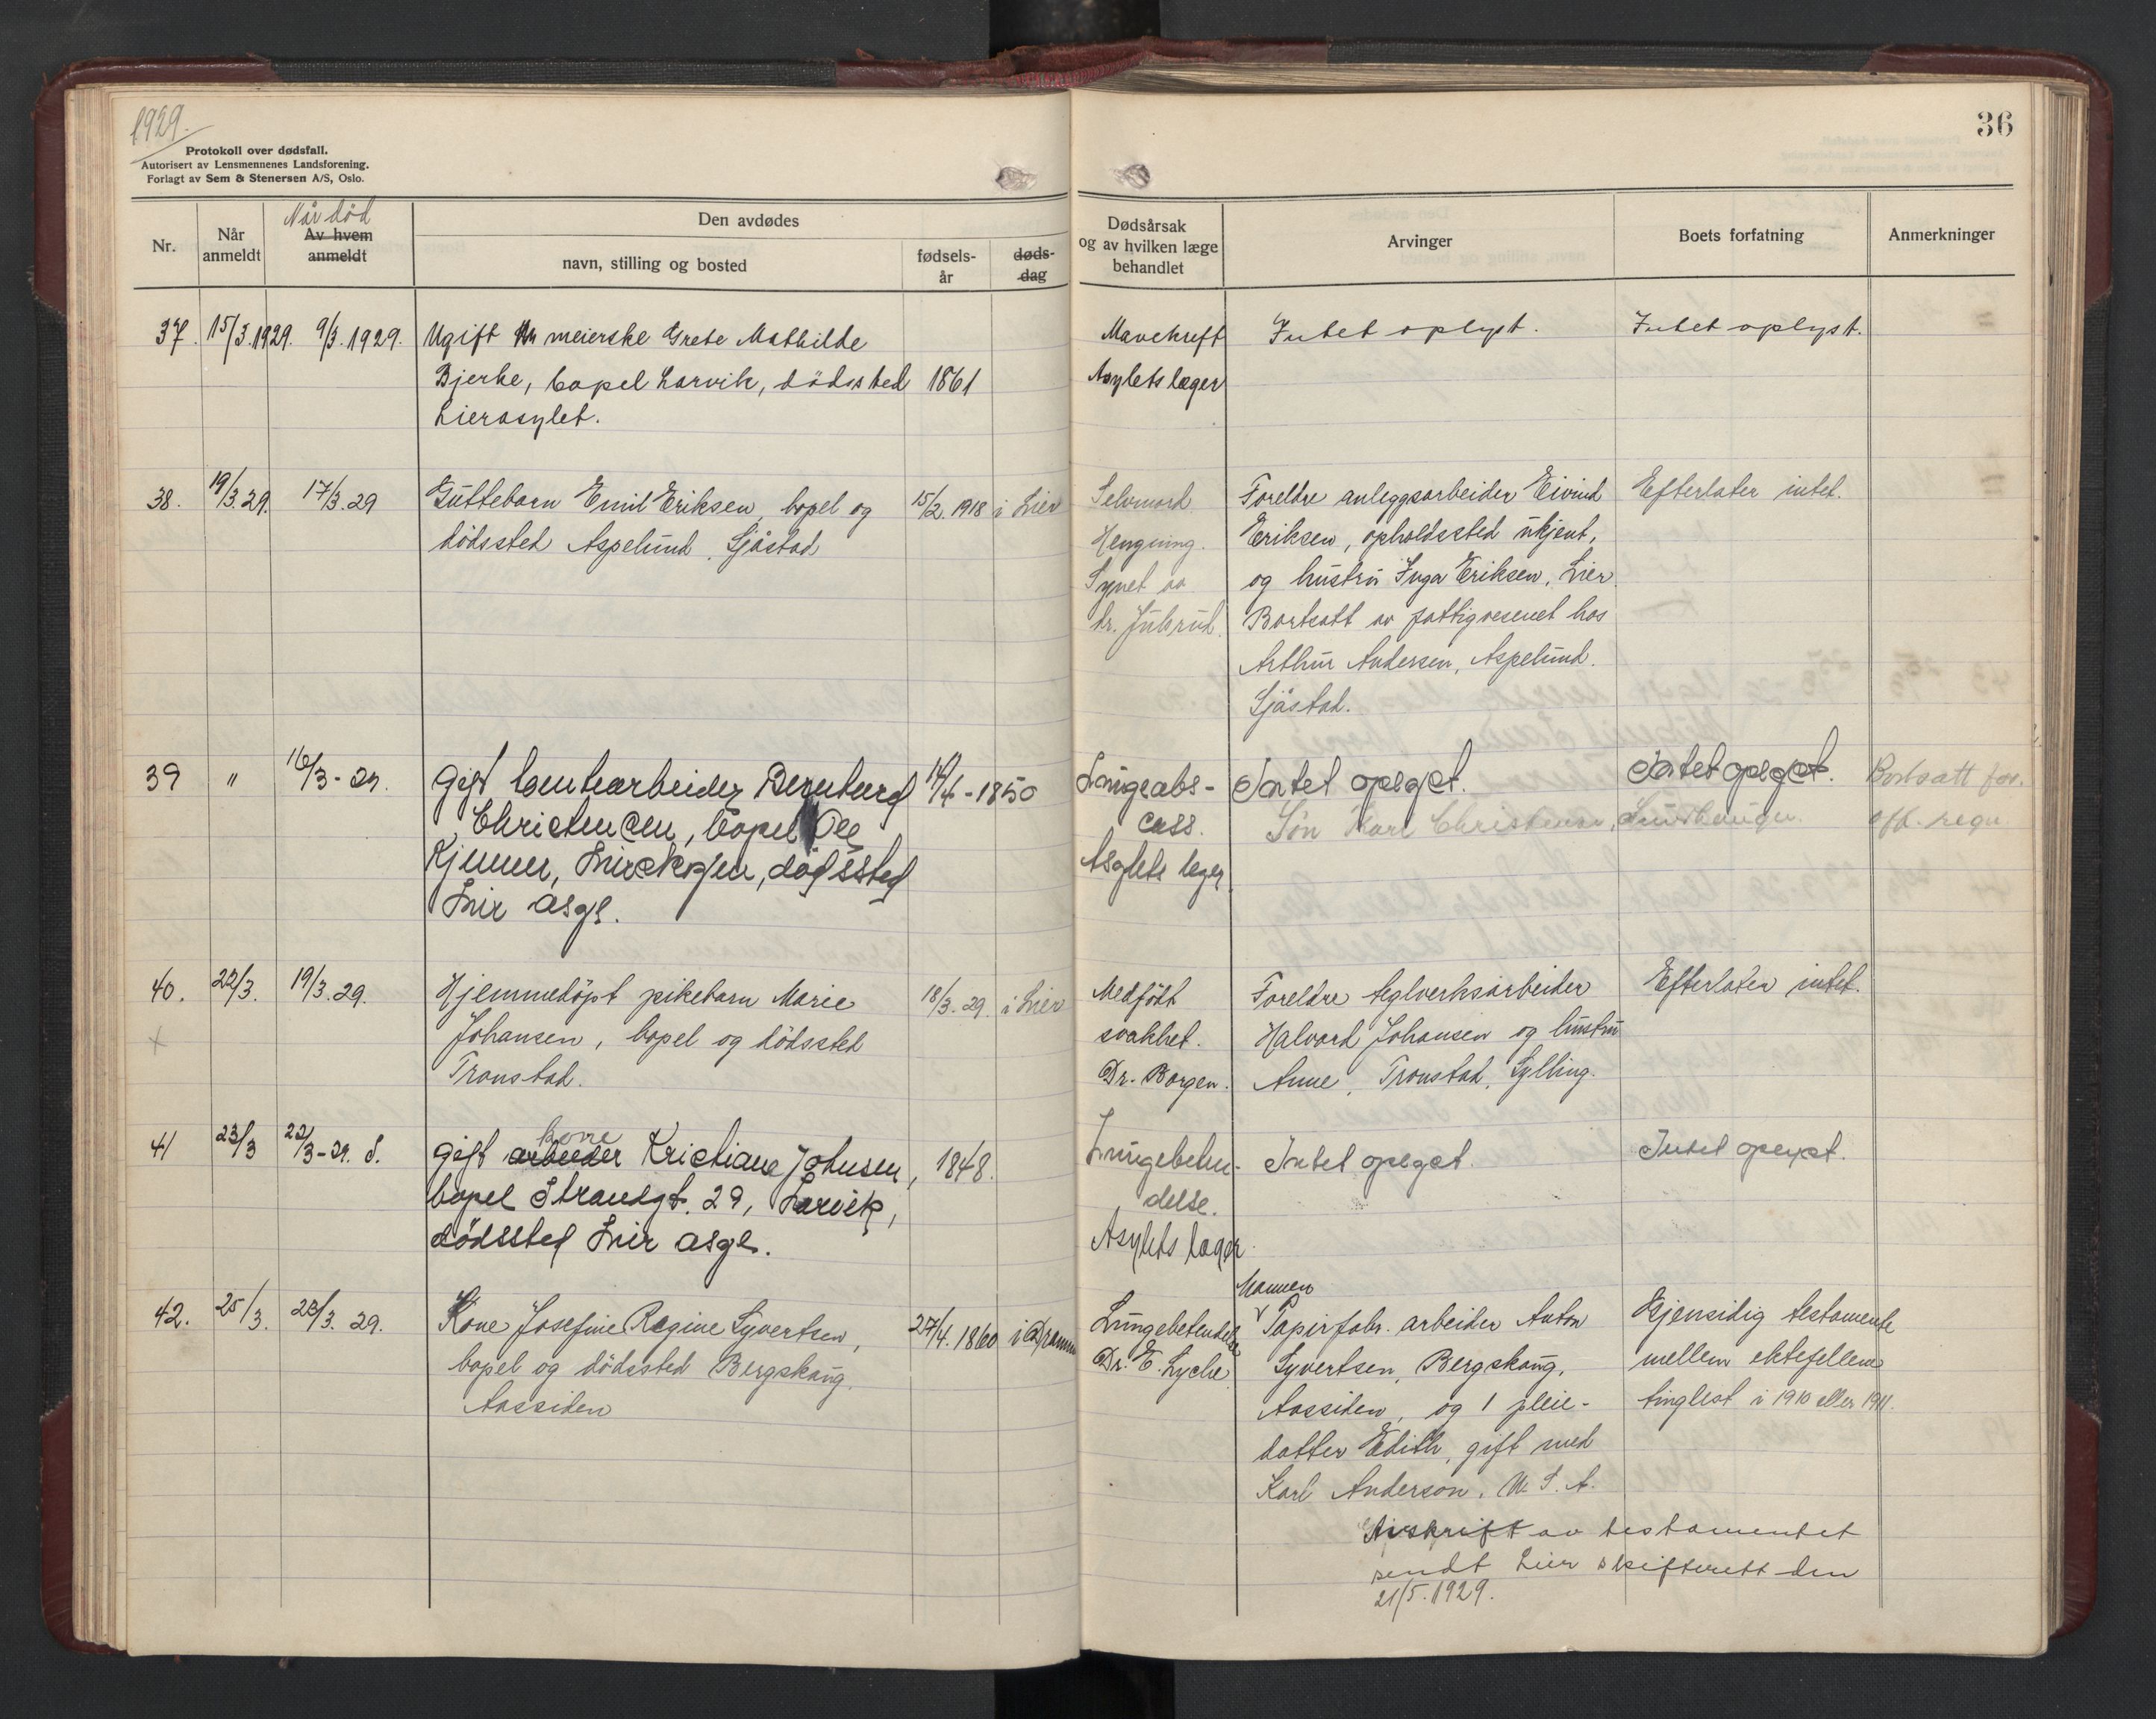 1929.
Protokoll over dødsfall.
Autorisert av Lensmennenes Landsforening.
Forlagt av Sem & Stenersen A/S, Oslo.
36
Nr.
Når anmeldt
Når död
Av hvem anmeldt
Den avdødes
navn, stilling og bosted
fødsels-
år
døds-
dag
Dødsårsak
og av hvilken læge
behandlet
Arvinger
Boets forfatning
Anmerkninger
37. 15/3.1929. 9/3.1929. Ugift meierske Grete Mathilde
Bjerke, bopel Larvik, dödssted 1861
Lierasylet.
Mavekreft Intet oplyst. Intet oplyst.
Asylets læger
38. 19/3.29. 17/3.29 Guttebarn Emil Eriksen, bopel og 15/2.1918 i Lier
dödssted Aspelund, Sjåstad
Selvmord. Foreldre anleggsarbeider Eivind Efterlater intet.
Hengning. Eriksen, opholdssted ukjent,
Synet av og hustru Inga Eriksen, Lier.
dr. Juhrud. Bortsatt av fattigvesenet hos
Arthur Andersen, Aspelund.
Sjåstad.
39 " 16/3-29. Gift bruksarbeider Bernhard 14/4-1850
Christensen, bopel Ole
Kjenner, Lierskogen, dødssted
Lier asyl.
Lungeabs- Intet oplyst. Intet oplyst. Bortsatt for
cess. Søn Karl Christensen, off. regn.
Asylets læger
40. 22/3. 19/3.29. Hjemmedöpt pikebarn Marie 18/3.29. i Lier
x Johansen, bopel og dödssted
Tronstad.
Medfödt Foreldre teglverksarbeider Efterlater intet.
svakhet. Halvard Johansen og hustru
Dr. Borgen. Anne, Tronstad, Sylling.
kone
41 23/3 22/3-29. S. Gift arbeider Kristiane Johnsen, 1848.
bopel Strandgt. 29, Larvik,
dödssted Lier asyl.
Lungebeten- Intet oplyst. Intet oplyst.
delse.
Asylets læger.
42. 25/3. 23/3.29. Kone Josefine Regine Syvertsen, 27/4.1860 i Dramm
bopel og dödssted Bergskaug,
Aassiden
Mannen
Lungebetendelse Papirfabr. arbeider Anton Gjensidig testamente
Dr. E. Lyche Syvertsen, Bergskaug, mellem ektefellene
Aassiden, og 1 pleie- tinglest i 1910 eller 1911.
datter Edith, gift med
Karl Anderson, U.S.A.
Avskrift av testamentet
sendt Lier skifterett den
21/5.1929.